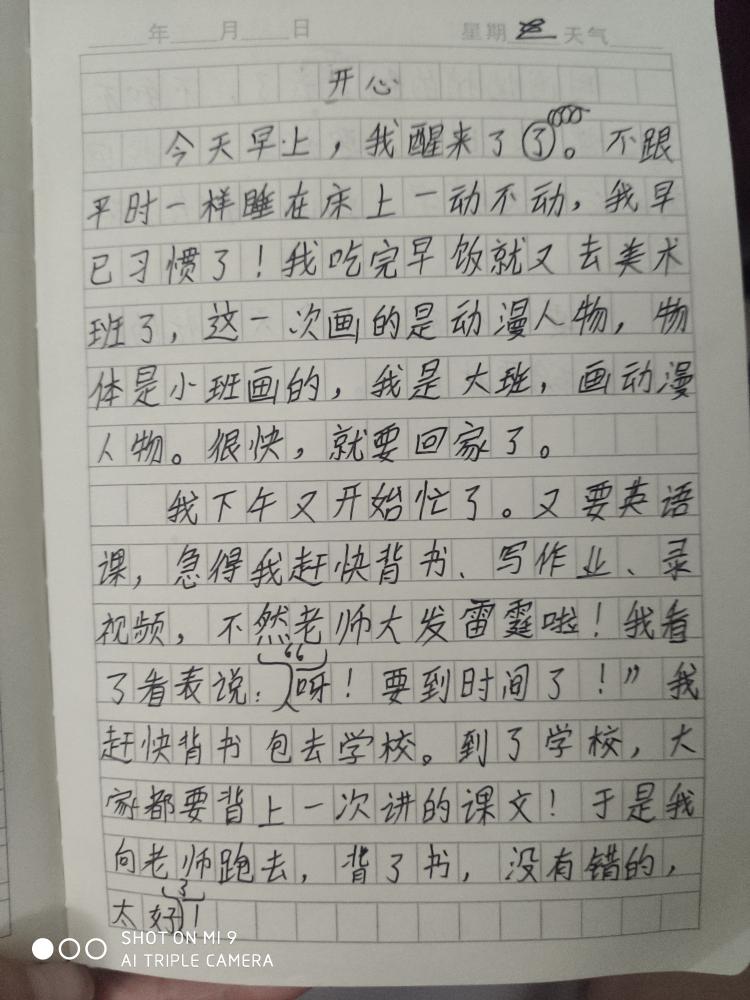 年 月 日 星期 天气
开心
今天早上，我醒来了。不跟
平时一样睡在床上一动不动，我早
已习惯了！我吃完早饭就又去美术
班了，这一次画的是动漫人物，物
体是小班画的，我是大班，画动漫
人物。很快，就要回家了。
我下午又开始忙了。又要英语
课，急得我赶快背书、写作业、录
视频，不然老师大发雷霆啦！我看
了看表说：“呀！要到时间了！”我
赶快背书包去学校。到了学校，大
家都要背上一次讲的课文！于是我
向老师跑去，背了书，没有错的，
太好了！
SHOT ON MI 9
AI TRIPLE CAMERA